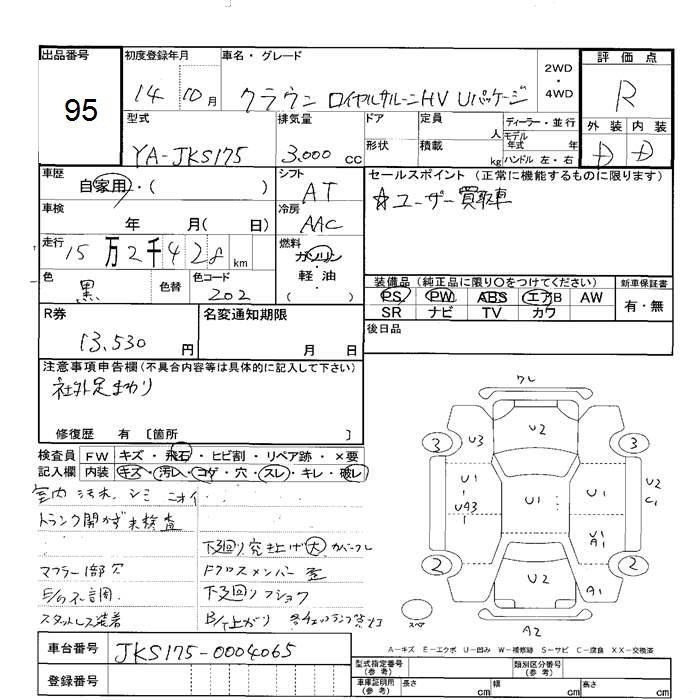 出品番号
95
初度登録年月
14 10月
車名・グレード
クラウン ロイヤルサルーンHV Uパッケージ
2WD
・
4WD
評価点
R
外装 内装
D D
型式
YA-JKS175
排気量
3,000 cc
ドア
形状
定員
人
積載
kg
ディーラー・並行
モデル年式 年
ハンドル 左・右
車歴
自家用・( )
シフト
AT
セールスポイント (正常に機能するものに限ります)
☆ユーザー買取車
車検
年 月( 日)
冷房
AAC
走行
15万2千428km
燃料
ガソリン
軽・油
( )
色
黒
色替
色コード
202
装備品 (純正品に限り○をつけてください)
PS PW ABS エアB AW
SR ナビ TV カワ
新車保証書
有・無
R券
13,530 円
名変通知期限
月 日
後日品
注意事項申告欄 (不具合内容等は具体的に記入して下さい)
社外足まわり
修復歴 有 〔箇所 〕
検査員記入欄
FW キズ・飛石・ヒビ割・リペア跡・×要
内装 キズ・汚れ・コゲ・穴・スレ・キレ・破レ
室内 汚れ シミ ニオイ
トランク開かず未検査
下廻り突き上げ(大) カバーワレ
マフラー1部穴
Fクロスメンバー歪
E/G不調
下廻りフショク
スタットレス装着
B/上がり 各チェックランプ点灯
車台番号
JKS175-0004065
登録番号
ワレ
U2
3
U3
3
U1
U1
U1
U2
C1
UA3
1
U1
A1
2
2
U2
A1
A2
スペア
A-キズ E-エクボ U-凹み W-補修跡 S-サビ C-腐食 XX-交換済
型式指定番号
(参考)
類別区分番号
(参考)
車庫証明用
(参考)
長さ cm
幅 cm
高さ cm